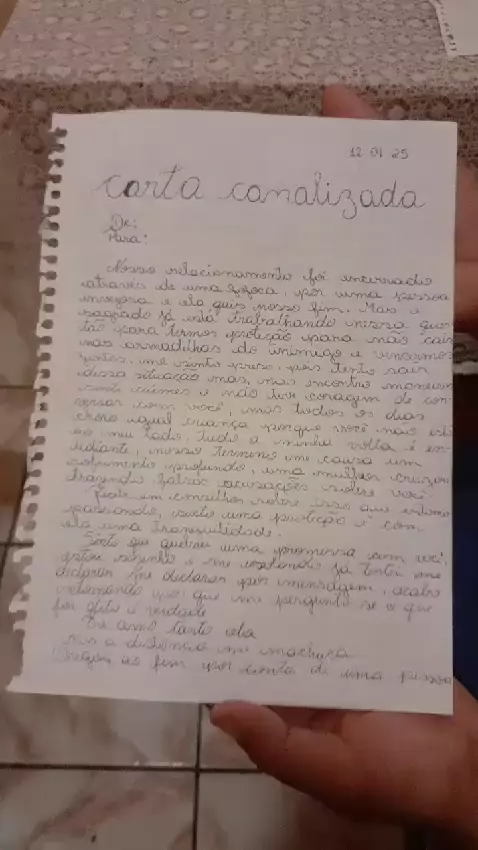 12 01 25
carta canalizada
De:
Para:
Nosso relacionamento foi encerrado
através de uma fofoca, por uma pessoa
invejosa e ela quis nosso fim. Mas o
sagrado já está trabalhando nessa ques
tão para termos proteção para não cair
nas armadilhas do inimigo e
juntos, me sinto preso, pois tento sair
dessa situação mas, nao encontro maneira
ciúmes e não tive coragem de con
versar com você, mas todos os dias
choro igual criança porque você não está
ao meu lado. Tudo a minha volta é en
tediante, nosso término me causa um
sofrimento profundo, uma mulher cruzou
trazendo falsas acusações sobre você
em conselhos sobre isso que estamos
passando, sinto uma proteção e com
ela uma tranquilidade.
Sinto que quebrei uma promessa com você,
estou sozinho e me já tentei me
declarar me declarar por mensagem, acabo
por que me pergunto se o que
foi dito é verdade
Te amo tanto
a distância me machuca
ao fim por conta de uma pessoa